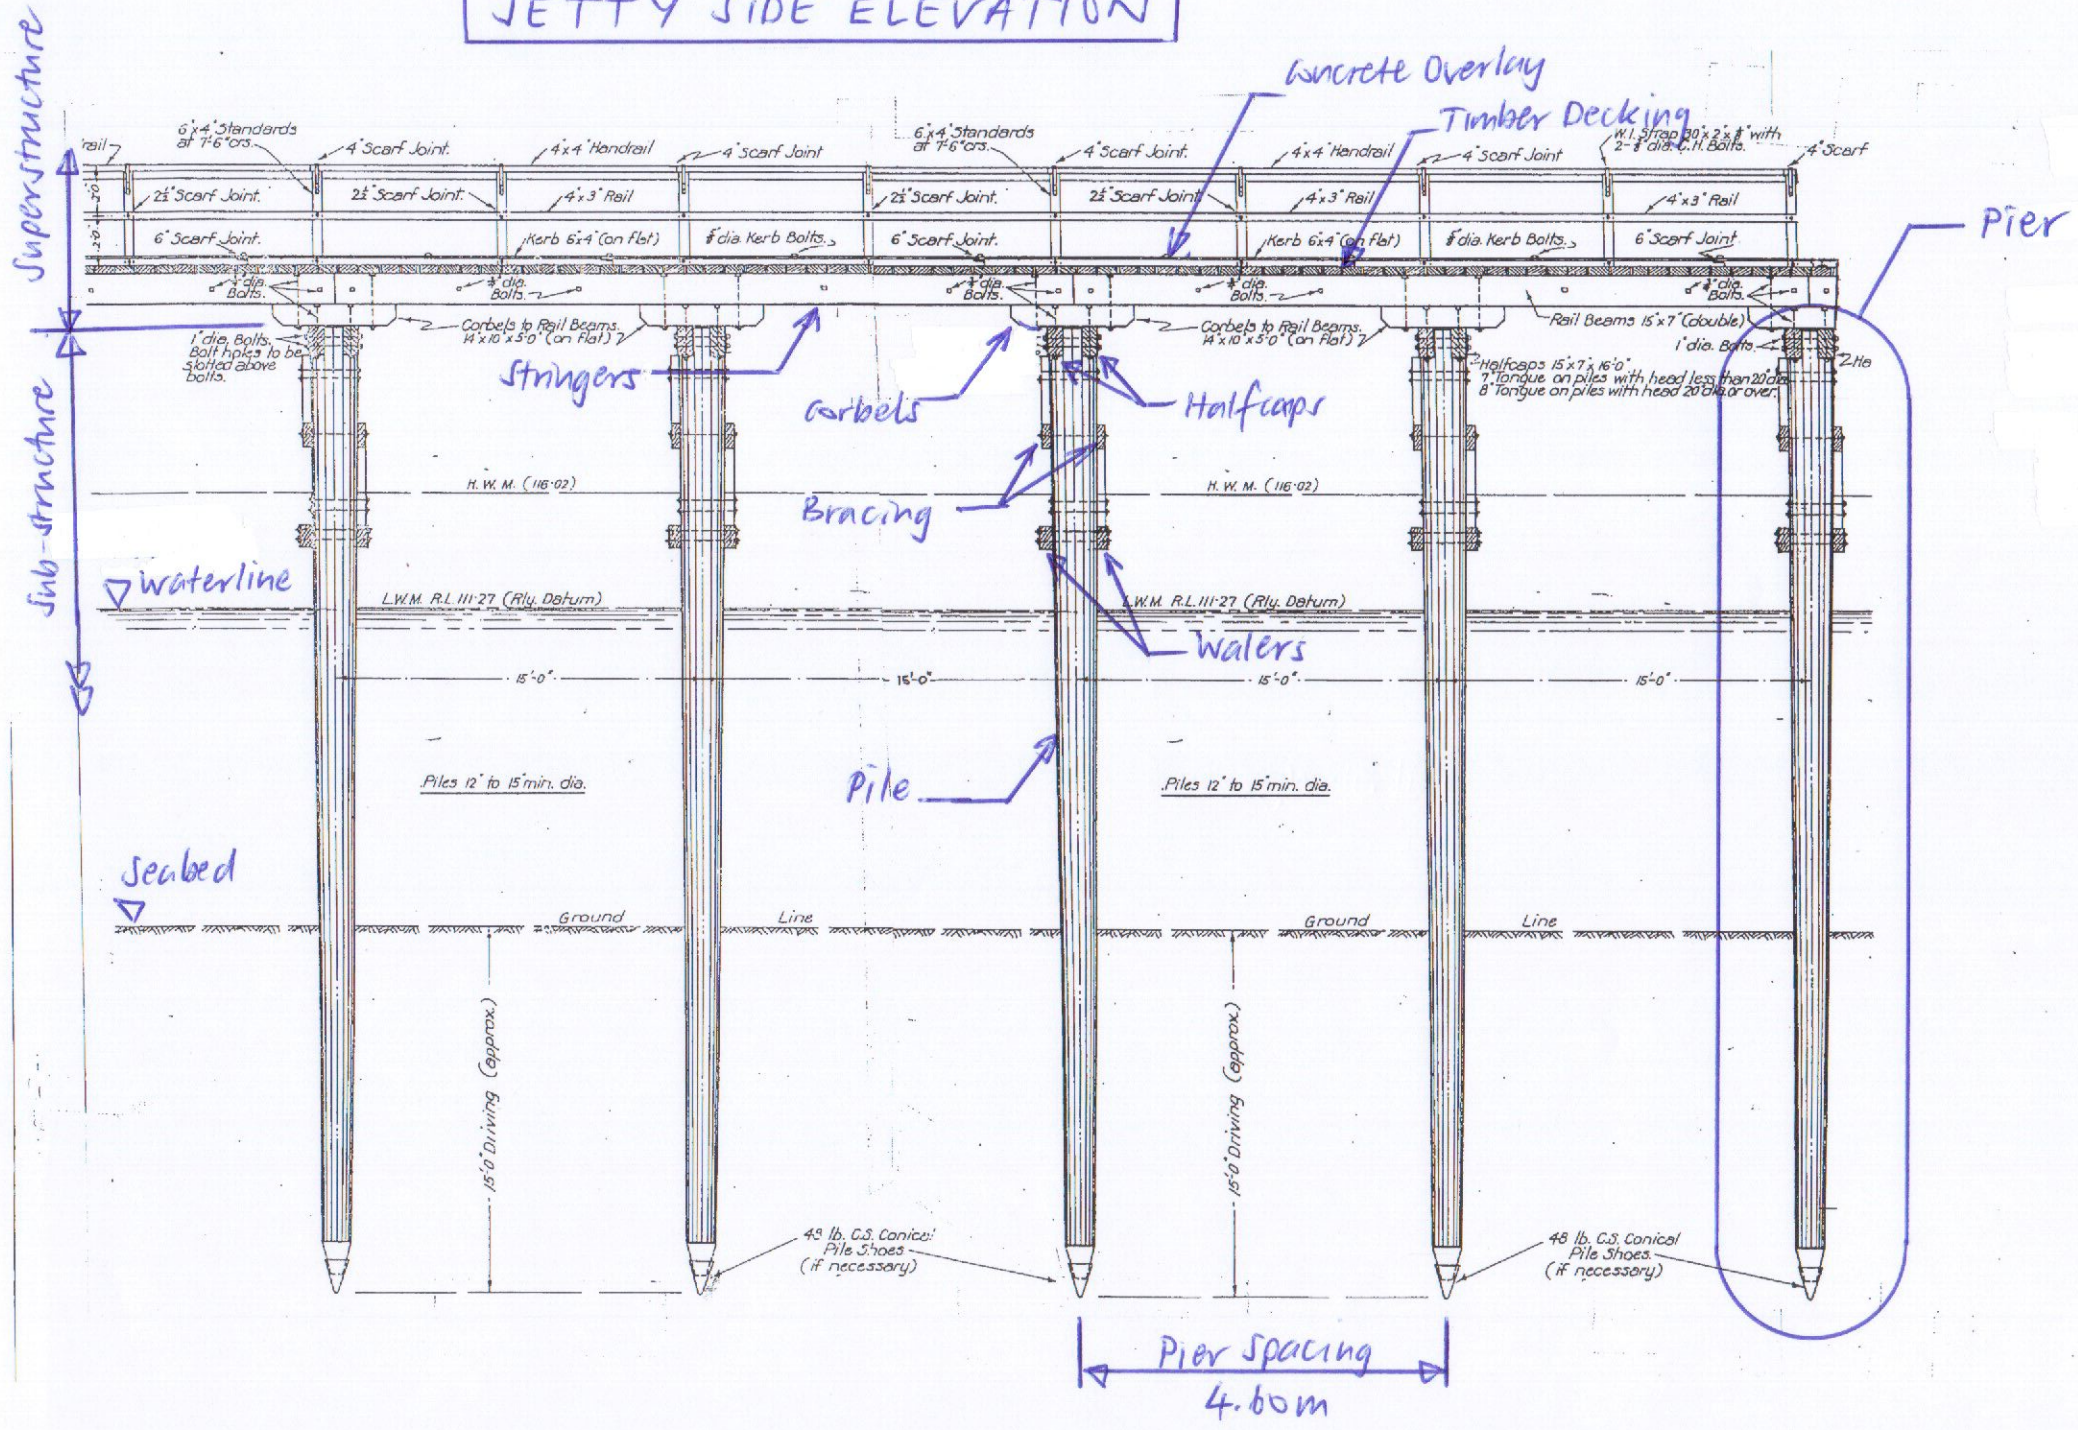 JETTY SIDE ELEVATION
Superstructure
Concrete Overlay
Timber Decking
6"x4" Standards
at 7'-6" crs.
4" Scarf Joint.
4"x4" Handrail
4" Scarf Joint
6"x4" Standards
at 7'-6" crs.
4" Scarf Joint.
4"x4" Handrail
4" Scarf Joint
W.I. Strap
with
dia. C.H. Bolts.
4" Scarf
rail
2½" Scarf Joint.
2½" Scarf Joint.
4"x3" Rail
2½" Scarf Joint.
2½" Scarf Joint.
4"x3" Rail
4"x3" Rail
2'-0"
2'-0"
Pier
6" Scarf Joint.
Kerb 6"x4" (on flat)
dia. Kerb Bolts.
6" Scarf Joint.
Kerb 6"x4" (on flat)
dia. Kerb Bolts.
6" Scarf Joint
dia.
Bolts.
dia.
Bolts.
dia.
Bolts.
dia.
Bolts.
dia.
Bolts.
1" dia. Bolts.
Bolt holes to be
slotted above
bolts.
Corbels to Rail Beams.
14"x10"x5'-0" (on flat)
Corbels to Rail Beams.
14"x10"x5'-0" (on flat)
Rail Beams 15"x7" (double)
1" dia. Bolts.
Stringers
Corbels
Halfcaps
Halfcaps 15"x7"x16'-0"
7" Tongue on piles with head less than 20" dia
8" Tongue on piles with head 20" dia. or over.
Ha
Sub-structure
H.W.M. (116·02)
H.W.M. (116·02)
Bracing
Waterline
L.W.M. R.L. 111·27 (Rly. Datum)
L.W.M. R.L. 111·27 (Rly. Datum)
Walers
15'-0"
15'-0"
15'-0"
15'-0"
Pile
Piles 12" to 15" min. dia.
Piles 12" to 15" min. dia.
Seabed
Ground Line
Ground Line
15'-0" Driving (approx)
15'-0" Driving (approx)
48 lb. C.S. Conical
Pile Shoes
(if necessary)
48 lb. C.S. Conical
Pile Shoes.
(if necessary)
Pier Spacing
4.60m